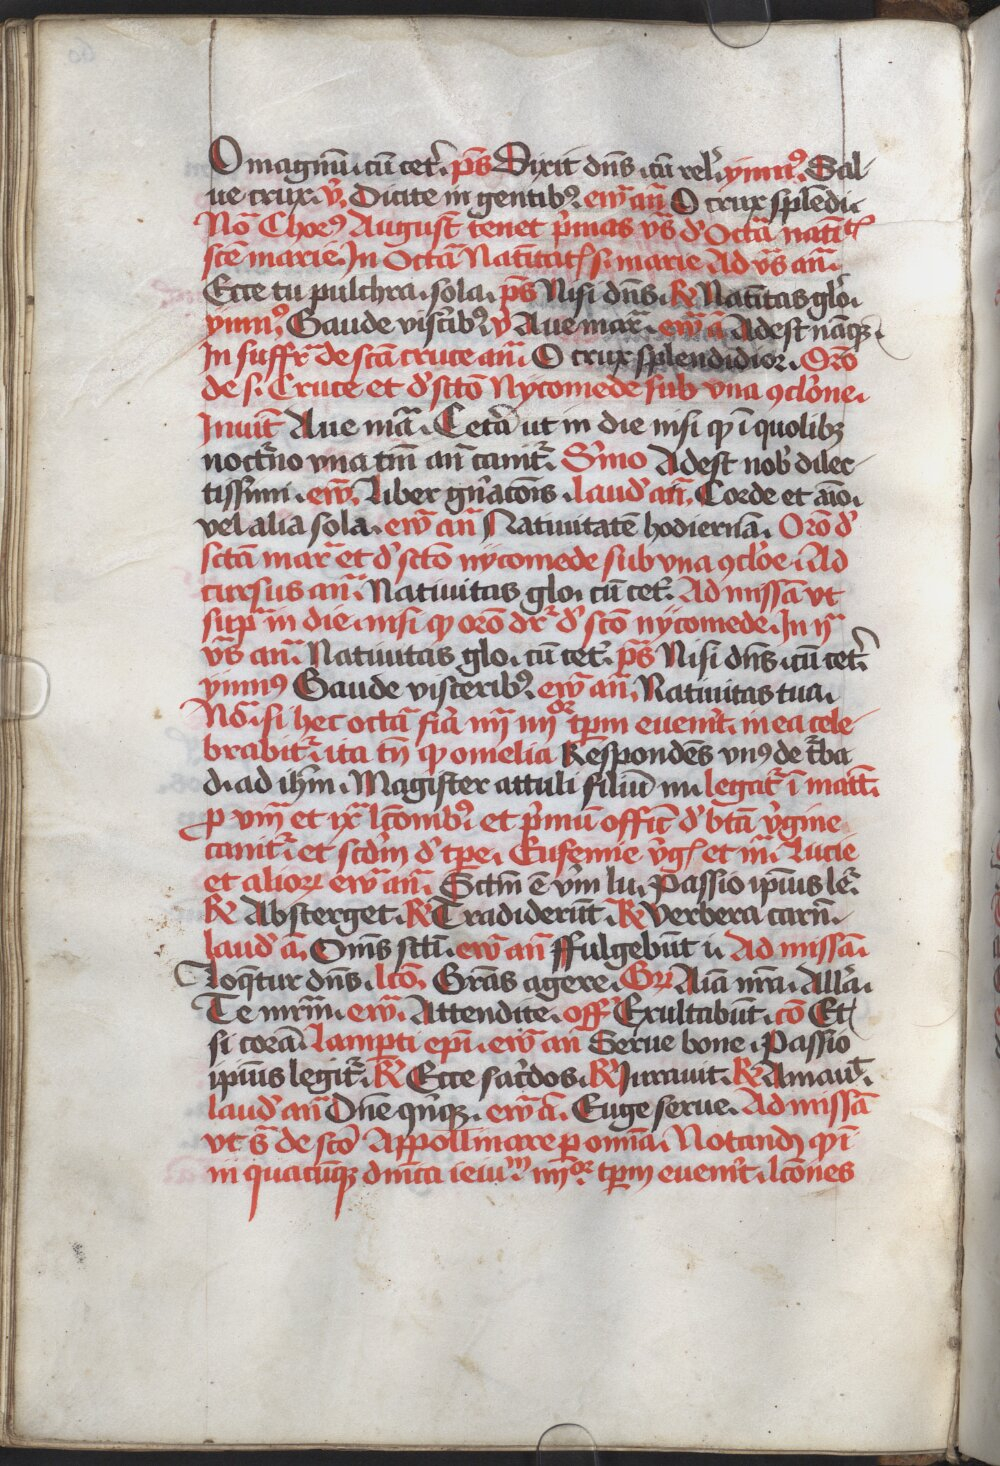 O magnū. cū cet̄. p̄s Dixit dn̄s. cū rel̄. ymnꝰ. Sal-
ue crux. v̄. Dicite in gentibꝰ. ew̄ an̄ O crux splēdi.
No͞ Chorꝰ August̄ tenet p̓mas vs̄ d̓ Octā natīt
scē marie. In Octā Natiītat̄ s. marie Ad vs̄ an̄.
Ecce tu pulchra. sola. p̄s Nisi dn̄s. R̶ Natītas glo.
ymnꝰ. Gaude viscībꝰ. v̄ Aue mar̄. ew̄ ā Adest nāqꝫ.
In suffr̄ de scā cruce an̄. O crux splendidior. Orō
de s. Cruce et d̓ sctō Nycomede sub vna ꝯclōne.
Inuit̄ Aue mā. Cetā ut in die nisi qp ī quolibꝫ
noct̓no vna tm̄ an̄ canit̄. S̓mo Adest nob̓ dilec-
tissimi. ew̄. Liber gn̓acōis. laud̓ an̄. Corde et aīo.
vel alia sola. ew̄ an̄ Natiuitatē hodiernā. Orō d̓
sctā mar̄ et d̓ sctō nycomede sub vna ꝯclōe. Ad
cursus an̄. Natiuitas glo. cū cet̄. Ad missā vt
sup̄ in die. nisi qp orō dr̄ d̓ scō nycomede. In ij
vs̄ an̄. Natiuitas glo. cū cet̄. p̄s Nisi dn̄s. cū cet̄.
ymnꝰ Gaude visceribꝰ. ew̄ an̄. Natiuitas tua.
No͞. si hec octā fīa iiij iiij or tꝑm euenīt in ea cele-
brabit̄. ita tn̄ qp omelia Respondēs vnꝰ de t̓ba
d. ad ihm̄. Magister attuli filiū m. legat̄ ī matt̄.
ꝑ viij et ix lc̄onibꝰ et p̓mū offic̄ d̓ btā v̓gine
canit̄. et scdm̄ d̓ tpe. Eufemie v̓g̓ et m̄. Lucie
et alioꝝ ew̄ an̄. Sctm̄ ē v̓m lu. Passio ipīus le̓.
R̶ Absterget. R̶ Tradiderūt. R̶ Verbera carn̄.
laud̓ ā. Oms̄ sctī. ew̄ an̄ ffulgebūt ii. Ad missā.
Loqūtur dn̄s. lcō. Grās agere. Gr̄ Aīa nr̄a. Allā.
Te mr̄m. ew̄. Attendite. off̄ Exultabūt. cō Et
si corā. Lamꝑti epī. ew̄ an̄ Serue bone. Passio
ipīus legit̄. R̶ Ecce sac̓dos. R̶ Jurauit. R̶ Amauit̄.
laud̓ an̄ Dn̄e qn̓qꝫ. ew̄ ā. Euge serue. Ad missā
vt s̄ de scō Appollinare ꝑ omīa. Notandꝫ qp ī
in quacūqꝫ dnīca ieiu iiij or tꝑm euenīt. lcōnes